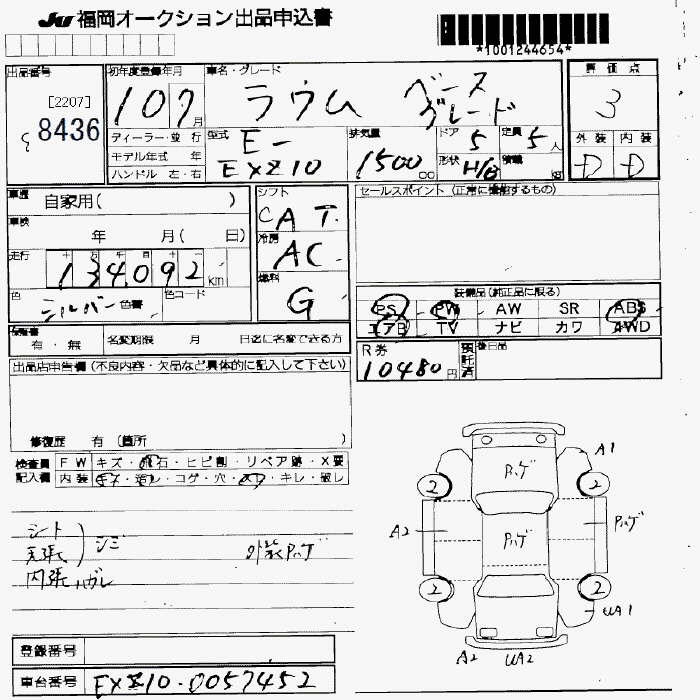 JU 福岡オークション出品申込書
*1001244654*
出品番号
[2207]
8436
初年度登録年月
10 7月
車名・グレード
ラウム ベースグレード
評価点
3
ディーラー・並行
モデル年式 年
ハンドル 左・右
型式
E-
EXZ10
排気量
1500 cc
ドア 5
定員 5人
形状 H/B
積載 kg
外装 内装
D D
車歴 自家用( )
車検 年 月( 日)
走行 十 万 千 百 十 一
134092 km
色 シルバー 色番
色コード
シフト
CAT
冷房
AC
燃料
G
セールスポイント(正常に機能するもの)
装備品(純正品に限る)
PS PW AW SR ABS
エアB TV ナビ カワ 4WD
保証書 有・無
名変期限 月 日迄に名変できる方
R券
10480円
預託済
後日品
出品店申告欄(不良内容・欠品など具体的に記入して下さい)
修復歴 有(箇所 )
検査員記入欄
FW キズ・飛石・ヒビ割・リペア跡・X要
内装 キズ・汚レ・コゲ・穴・スレ・キレ・破レ
シート
天張
内張ハガレ
シミ
外装Pハゲ
A1
Pハゲ
2 2
A2
Pハゲ
Pハゲ
2 2
UA1
A2 UA2
登録番号
車台番号 EXZ10-0057452